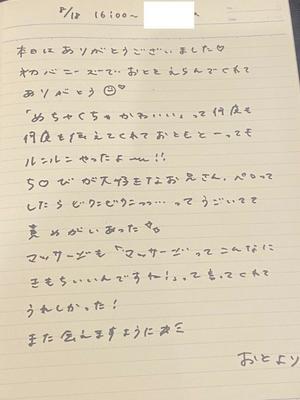 8/18 16:00〜
本日はありがとうございました♡
初バニーズでおとをえらんでくれて
ありがとう
「めちゃくちゃかわいい」って何度も
何度も伝えてくれておともとーっても
ルンルンやったよ〜!!
大好きなお兄さん、ペロって
したらビクンビクンっっ…ってうごいてて
責めがいあった
マッサージも「マッサージってこんなに
きもちいいんですね!」って言ってくれて
うれしかった!
また会えますように
おとより